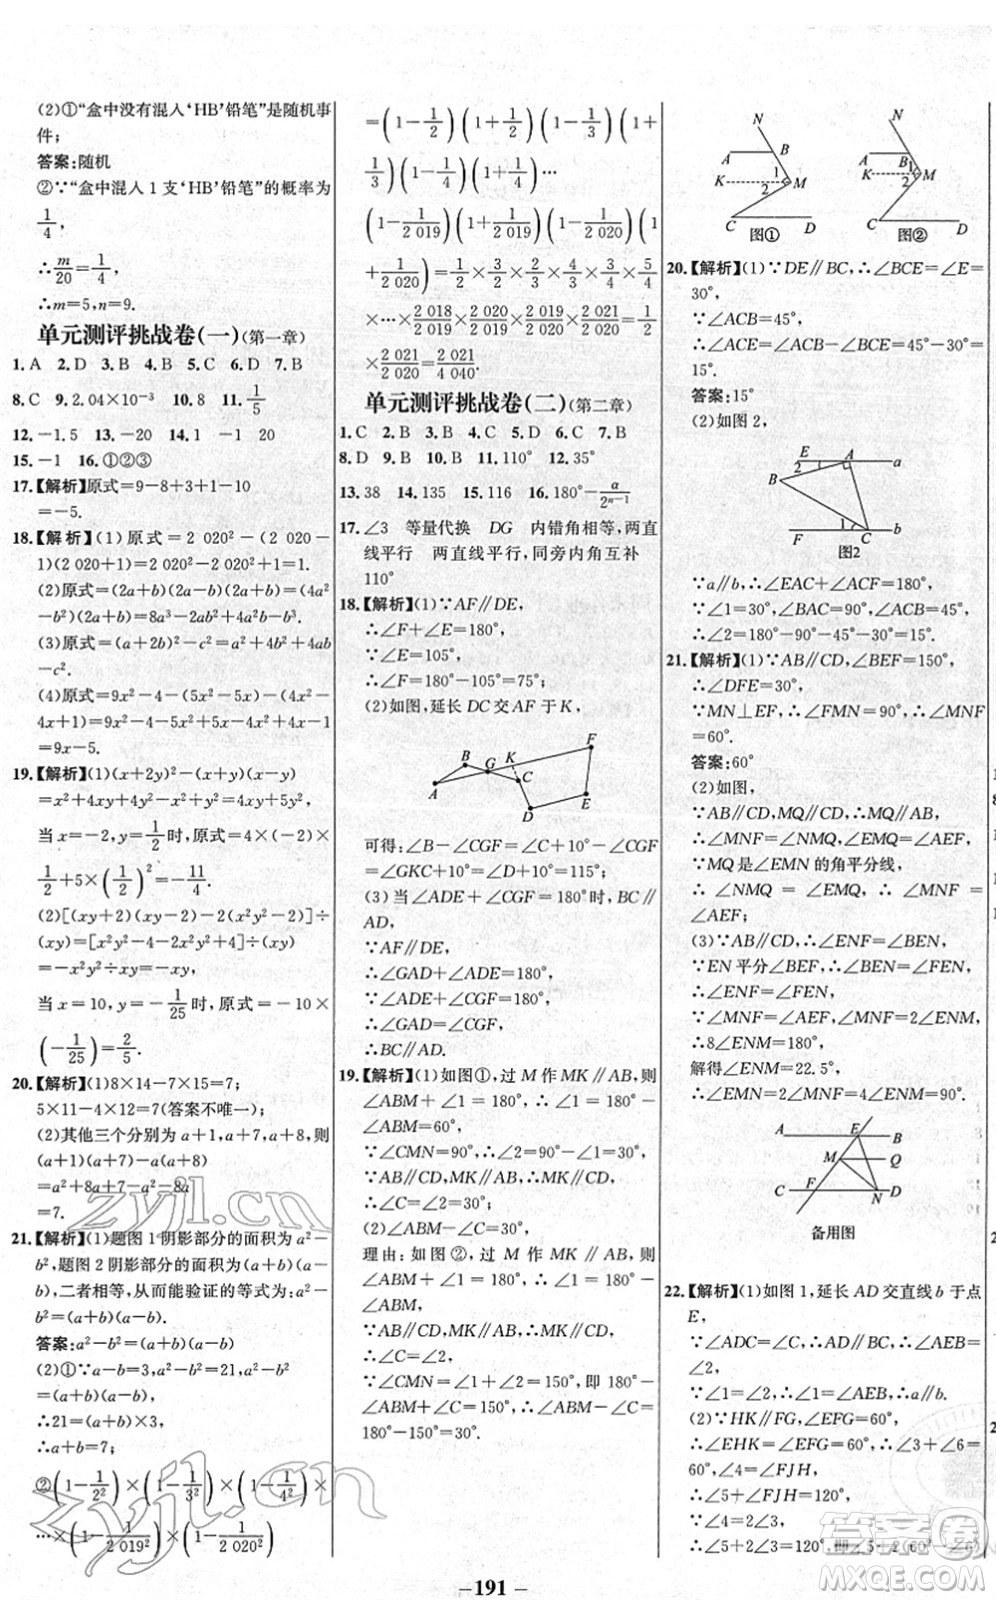 (2)①“盒中没有混入‘HB’铅笔”是随机事
件;
答案:随机
②∵“盒中混入1支‘HB’铅笔”的概率为
1/4,
∴m/20=1/4,
∴m=5,n=9.
单元测评挑战卷(一)(第一章)
1.A 2.D 3.B 4.B 5.C 6.D 7.B
8.C 9.2.04×10⁻³ 10.8 11.1/5
12.-1.5 13.-20 14.1 -1 20
15.-1 16.①②③
17.【解析】原式=9-8+3+1-10
=-5.
18.【解析】(1)原式=2 020²-(2 020-
1)(2 020+1)=2 020²-2 020²+1=1.
(2)原式=(2a+b)(2a-b)(2a+b)=(4a²
-b²)(2a+b)=8a³+4a²b-2ab²-b³.
(3)原式=(a+2b)²-c²=a²+4b²+4ab
-c².
(4)原式=9x²-4-(5x²-5x)-(4x²-
4x+1)=9x²-4-5x²+5x-4x²+4x-1
=9x-5.
19.【解析】(1)(x+2y)²-(x+y)(x-y)
=x²+4xy+4y²-x²+y²=4xy+5y²,
当x=-2,y=1/2时,原式=4×(-2)×
1/2+5×(1/2)²=-11/4.
(2)[(xy+2)(xy-2)-2(x²y²-2)]÷
(xy)=[x²y²-4-2x²y²+4]÷(xy)
=-x²y²÷xy=-xy,
当x=10,y=-1/25时,原式=-10×
(-1/25)=2/5.
20.【解析】(1)8×14-7×15=7;
5×11-4×12=7(答案不唯一);
(2)其他三个分别为a+1,a+7,a+8,则
(a+1)(a+7)-a(a+8)
=a²+8a+7-a²-8a
=7.
21.【解析】(1)题图1阴影部分的面积为a²-
b²,题图2阴影部分的面积为(a+b)(a-
b),二者相等,故能验证的等式为:a²-
b²=(a+b)(a-b).
答案:a²-b²=(a+b)(a-b)
(2)①∵a-b=3,a²-b²=21,a²-b²
=(a+b)(a-b),
∴21=(a+b)×3,
∴a+b=7;
②(1-1/2²)×(1-1/3²)×(1-1/4²)×
⋯×(1-1/2 019²)×(1-1/2 020²)
=(1-1/2)(1+1/2)(1-1/3)(1+
1/3)(1-1/4)(1+1/4)⋯
(1-1/2 019)(1+1/2 019)(1-1/2 020)(1
+1/2 020)=1/2×3/2×2/3×4/3×3/4×5/4
×⋯×2 018/2 019×2 020/2 019×2 019/2 020×2 021/2 020=1/2
×2 021/2 020=2 021/4 040.
单元测评挑战卷(二)(第二章)
1.C 2.B 3.B 4.C 5.D 6.C 7.B
8.D 9.B 10.C 11.110° 12.35°
13.38 14.135 15.116 16.180°-α/2ⁿ⁻¹
17.∠3 等量代换 DG 内错角相等,两直
线平行 两直线平行,同旁内角互补
110°
18.【解析】(1)∵AF∥DE,
∴∠F+∠E=180°,
∵∠E=105°,
∴∠F=180°-105°=75°;
(2)如图,延长DC交AF于K,
F
B G K
C
A
E
D
可得:∠B-∠CGF=∠C+10°-∠CGF
=∠GKC+10°=∠D+10°=115°;
(3)当∠ADE+∠CGF=180°时,BC∥
AD,
∵AF∥DE,
∴∠GAD+∠ADE=180°,
∵∠ADE+∠CGF=180°,
∴∠GAD=∠CGF,
∴BC∥AD.
19.【解析】(1)如图①,过M作MK∥AB,则
∠ABM+∠1=180°,∴∠1=180°-
∠ABM=60°,
∵∠CMN=90°,∴∠2=90°-∠1=30°,
∵AB∥CD,MK∥AB,∴MK∥CD,
∴∠C=∠2=30°;
(2)∠ABM-∠C=30°,
理由:如图②,过M作MK∥AB,则
∠ABM+∠1=180°,∴∠1=180°-
∠ABM,
∵AB∥CD,MK∥AB,∴MK∥CD,
∴∠C=∠2,
∵∠CMN=∠1+∠2=150°,即180°-
∠ABM+∠C=150°,∴∠ABM-∠C=
180°-150°=30°.
N N
A B A B 1
K 1 2 M K 2 M
C D C D
图① 图②
20.【解析】(1)∵DE∥BC,∴∠BCE=∠E=
30°,
∵∠ACB=45°,
∴∠ACE=∠ACB-∠BCE=45°-30°=
15°.
答案:15°
(2)如图2,
E A
2 a
B
1
F C b
图2
∵a∥b,∴∠EAC+∠ACF=180°,
∵∠1=30°,∠BAC=90°,∠ACB=45°,
∴∠2=180°-90°-45°-30°=15°.
21.【解析】(1)∵AB∥CD,∠BEF=150°,
∴∠DFE=30°;
∵MN⊥EF,∴∠FMN=90°,∴∠MNF
=60°.
答案:60°
(2)如图,
∵AB∥CD,MQ∥CD,∴MQ∥AB,
∴∠MNF=∠NMQ,∠EMQ=∠AEF,
∵MQ是∠EMN的角平分线,
∴∠NMQ=∠EMQ,∴∠MNF=
∠AEF;
(3)∵AB∥CD,∴∠ENF=∠BEN,
∵EN平分∠BEF,∴∠BEN=∠FEN,
∴∠ENF=∠FEN,
∵∠MNF=∠AEF,∠MNF=2∠ENM,
∴8∠ENM=180°,
解得∠ENM=22.5°,
∴∠EMN=∠MNF=4∠ENM=90°.
A E B
M Q
C F N D
备用图
22.【解析】(1)如图1,延长AD交直线b于点
E,
∵∠ADC=∠C,∴AD∥BC,∴∠AEB=
∠2,
∵∠1=∠2,∴∠1=∠AEB,∴a∥b.
(2)∵HK∥FG,∠EFG=60°,
∴∠EHK=∠EFG=60°,∴∠3+∠6=
60°,
∵∠4=∠FJH,
∴∠5+∠FJH=120°,
∴∠5+∠4=120°,
∵∠2=∠3,
∴∠5+∠2=120°,即∠5+∠2-60°-∠6°
-191-
zyjl.cn
zyjl.cn
答案卷
MXQE.COM